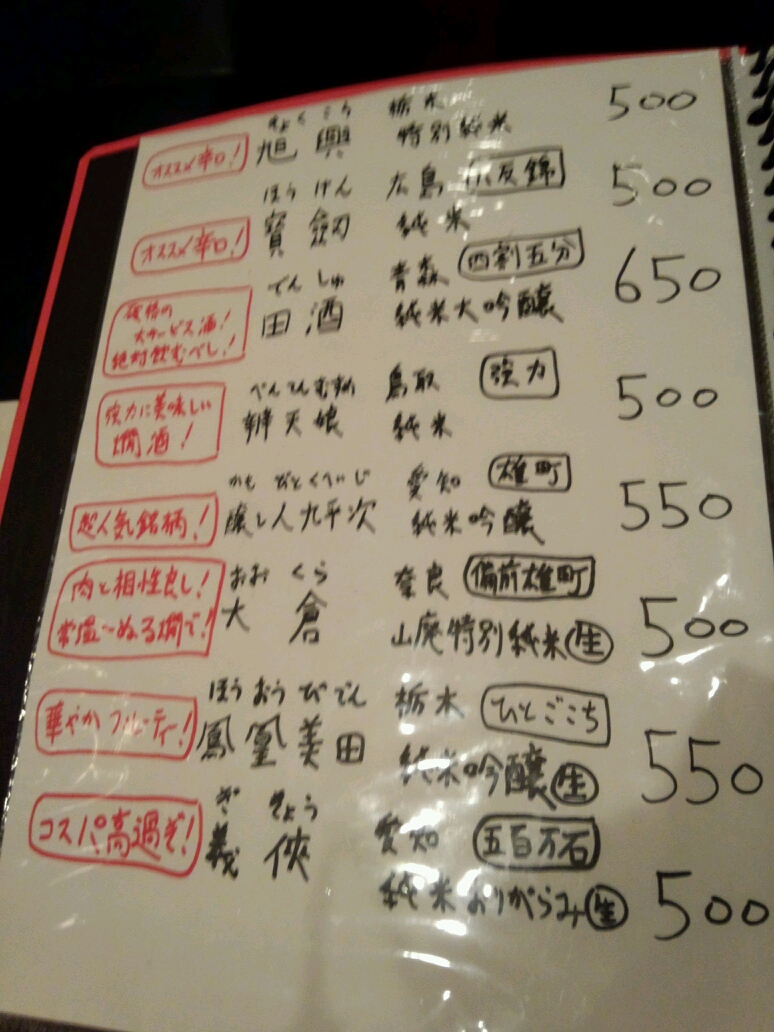 きょくこう 栃木 500
オススメ辛口! 旭興 特別純米
ほうけん 広島 八反錦 500
オススメ辛口! 寳劔 純米
でんしゅ 青森 四割五分 650
価格の
大サービス酒!
絶対飲むべし!
田酒 純米大吟醸
べんてんむすめ 鳥取 強力 500
強力に美味しい
燗酒!
辨天娘 純米
かもしびとくへいじ 愛知 雄町 550
超人気銘柄! 醸し人九平次 純米吟醸
肉と相性良し!
常温〜ぬる燗で!
おおくら 奈良 備前雄町 500
大倉 山廃特別純米 生
ほうおうびでん 栃木 ひとごこち
華やかフルーティ! 鳳凰美田 純米吟醸 生 550
ぎきょう 愛知 五百万石
コスパ高過ぎ! 義侠 純米おりがらみ 生 500